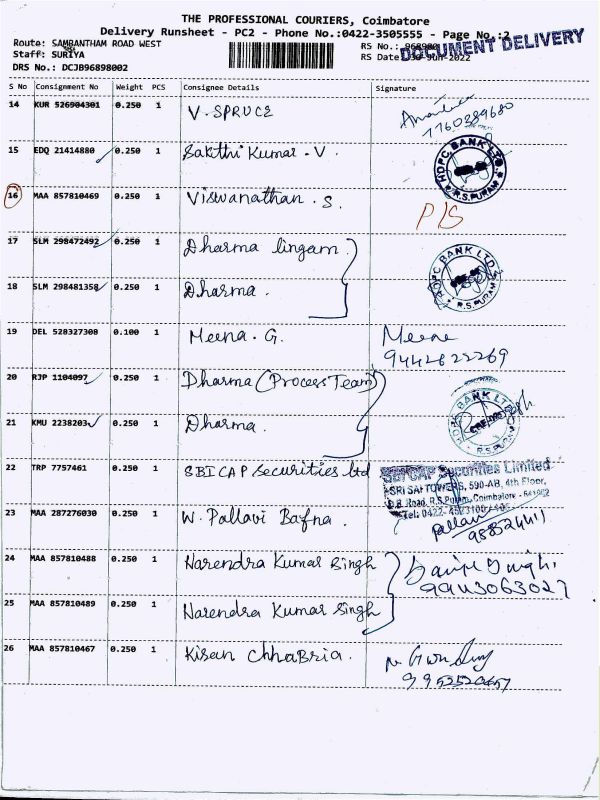 THE PROFESSIONAL COURIERS, Coimbatore
Delivery Runsheet - PC2 - Phone No.:0422-3505555 - Page No.:2
DOCUMENT DELIVERY
Route: SAMBANTHAM ROAD WEST
RS No.: 968980
Staff: SURIYA
RS Date: 30-Jun-2022
DRS No.: DCJB96898002
S No Consignment No Weight PCS Consignee Details Signature
14 KUR 526904301 0.250 1 V. SPRUCE
7760389680
15 EDQ 21414880 0.250 1 Sakthi Kumar - V.
HDFC BANK LTD. R.S.PURAM
16 MAA 857810469 0.250 1 Viswanathan . S. P/S
17 SLM 298472492 0.250 1 Dharma lingam
HDFC BANK LTD. R.S.PURAM
18 SLM 298481358 0.250 1 Dharma .
19 DEL 528327300 0.100 1 Meena . G. Meena
9442622269
20 RJP 1104097 0.250 1 Dharma (Process Team)
HDFC BANK LTD. R.S.PURAM
21 KMU 2238203 0.250 1 Dharma .
22 TRP 7757461 0.250 1 SBICAP Securities ltd
SBICAP Securities Limited
SRI SAI TOWERS, 590-AB, 4th Floor,
D.B. Road, R.S.Puram, Coimbatore - 641002
Tel: 0422-
23 MAA 287276030 0.250 1 W. Pallavi Bafna . Pallavi
24 MAA 857810488 0.250 1 Narendra Kumar Singh
9943063027
25 MAA 857810489 0.250 1 Narendra Kumar Singh
26 MAA 857810467 0.250 1 Kisan Chhabria .